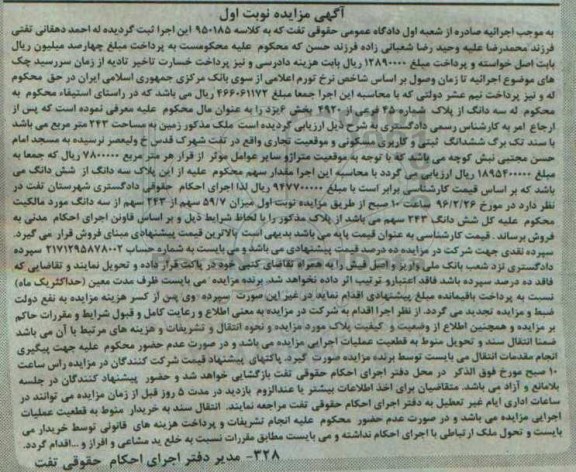 آگهی مزایده نوبت اول
به موجب اجرائیه صادره از شعبه اول دادگاه عمومی حقوقی تفت که به کلاسه ۹۵۰۱۸۵ این اجرا ثبت گردیده له احمد دهقانی تفتی
فرزند محمدرضا علیه وحید رضا شعبانی زاده فرزند حسن که محکوم علیه محکومست به پرداخت مبلغ چهارصد میلیون ریال
بابت اصل خواسته و پرداخت مبلغ ۱۲۸۹۰۰۰۰ ریال بابت هزینه دادرسی و نیز پرداخت خسارت تاخیر تادیه از زمان سررسید چک
های موضوع اجرائیه تا زمان وصول بر اساس شاخص نرخ تورم اعلامی از سوی بانک مرکزی جمهوری اسلامی ایران در حق محکوم
له و نیز پرداخت نیم عشر دولتی که با محاسبه این اجرا جمعا مبلغ ۴۶۶۰۶۱۱۷۲ ریال می باشد که در راستای استیفاء محکوم به
محکوم له سه دانگ از پلاک شماره ۴۵ فرعی از ۲۹۲۰ بخش ۶یزد را به عنوان مال محکوم علیه معرفی نموده است که پس از
ارجاع امر به کارشناس رسمی دادگستری به شرح ذیل ارزیابی گردیده است ملک مذکور زمین به مساحت ۲۴۳ متر مربع می باشد
با سند تک برگ ششدانگ ثبتی و کاربری مسکونی و موقعیت تجاری واقع در تفت شهرک قدس خ ولیعصر نرسیده به مسجد امام
حسن مجتبی نبش کوچه می باشد که با توجه به موقعیت متراژو سایر عوامل موثر از قرار هر متر مربع ۷۸۰۰۰۰۰ ریال که جمعا به
مبلغ ۱۸۹۵۴۰۰۰۰۰ ریال ارزیابی می گردد با محاسبه این اجرا مقدار سهم محکوم علیه از این پلاک سه دانگ از شش دانگ می
باشد که بر اساس قیمت کارشناسی برابر است با مبلغ ۹۴۷۷۰۰۰۰۰ ریال لذا اجرای احکام حقوقی دادگستری شهرستان تفت در
نظر دارد در مورخ ۹۶/۲/۲۶ ساعت ۱۰ صبح از طریق مزایده نوبت اول میزان ۵۹/۷ سهم از ۲۴۳ سهم از سه دانگ مورد مالکیت
محکوم علیه کل شش دانگ ۲۴۳ سهم می باشد از پلاک مذکور را با لحاظ شرایط ذیل و بر اساس قاونن اجرای احکام مدنی به
فروش برساند . قیمت کارشناسی به عنوان قیمت پایه می باشد بدیهی است بالاترین قیمت پیشنهادی مبنای فروش قرار می گیرد.
سپرده نقدی جهت شرکت در مزایده ده درصد قیمت پیشنهادی می باشد و می بایست به شماره حساب ۲۱۷۱۲۹۵۸۷۸۰۰۲ سپرده
دادگستری نزد شعب بانک ملی واریز و اصل فیش را به همراه تقاضای کتبی خود در پاکت قرار داده و تحویل نمایند و تقاضایی که
فاقد ده درصد سپرده باشد فاقد اعتبارو ترتیب اثر داده نخواهد شد. برنده مزایده می بایست ظرف مدت معین (حداکثریک ماه)
نسبت به پرداخت باقیمانده مبلغ پیشنهادی اقدام نماید در غیر این صورت سپرده وی پس از کسر هزینه مزایده به نفع دولت
ضبط و مزایده تجدید می گردد. از نظر اجرا اقدام به شرکت در مزایده به معنی اطلاع و رعایت کامل و قبول شرایط و مقررات حاکم
بر مزایده و همچنین اطلاع از وضعیت و کیفیت پلاک مورد مزایده و نحوه انتقال و تشریفات و هزینه های مرتبط با آن می باشد
ضمنا انتقال سند و تحویل منوط به قطعیت عملیات اجرایی مزایده می باشد و در صورت عدم حضور محکوم علیه جهت پیگیری
انجام مقدمات انتقال می بایست توسط برنده مزایده صورت گیرد. پاکتهای پیشنهاد قیمت شرکت کنندگان در مزایده راس ساعت
۱۰ صبح مورخ فوق الذکر در محل دفتر اجرای احکام حقوقی تفت بازگشایی خواهد شد و حضور پیشنهاد کنندگان در جلسه
بلامانع و آزاد می باشد. متقاضیان برای اخذ اطلاعات بیشتر یا عندالزوم بازدید در مدت ۵ روز قبل از زمان مزایده می توانند در
ساعات اداری ایام غیر تعطیل به دفتر اجرای احکام حقوقی تفت مراجعه نمایند. انتقال سند به خریدار منوط به قطعیت عملیات
اجرایی مزایده می باشد و در صورت عدم حضور محکوم علیه انجام تشریفات و پرداخت هزینه های قانونی توسط خریدار می
بایست و تحول ملک ارتباطی با اجرای احکام نداشته و می بایست مطابق مقررات نسبت به خلع ید مشاعی و افراز و ...اقدام گردد.
۳۲۸- مدیر دفتر اجرای احکام حقوقی تفت